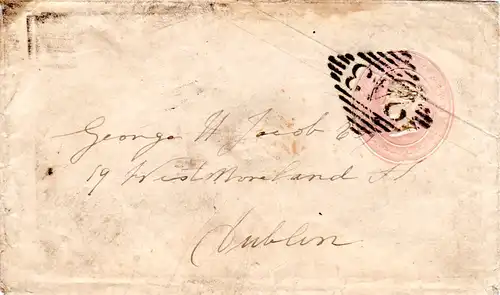 George H Jacob Esq
19 Westmoreland St
Dublin